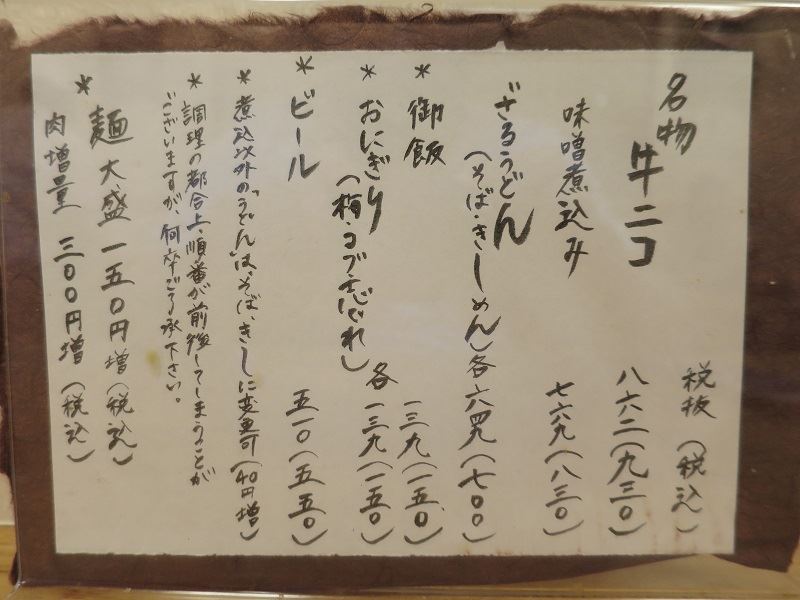 税抜(税込)
名物 牛ニコ 八六二(九三〇)
味噌煮込み 七六九(八三〇)
ざるうどん
(そば・きしめん)各六四九(七〇〇)
*御飯 一三九(一五〇)
*おにぎり
(梅・コブ・志ぐれ)各一三九(一五〇)
*ビール 五一〇(五五〇)
*煮込以外の「うどん」は、そば、きしに変更可(40円増)
*調理の都合上、順番が前後してしまうことが
ございますが、何卒ご了承下さい。
*麺大盛一五〇円増(税込)
肉増量 三〇〇円増(税込)